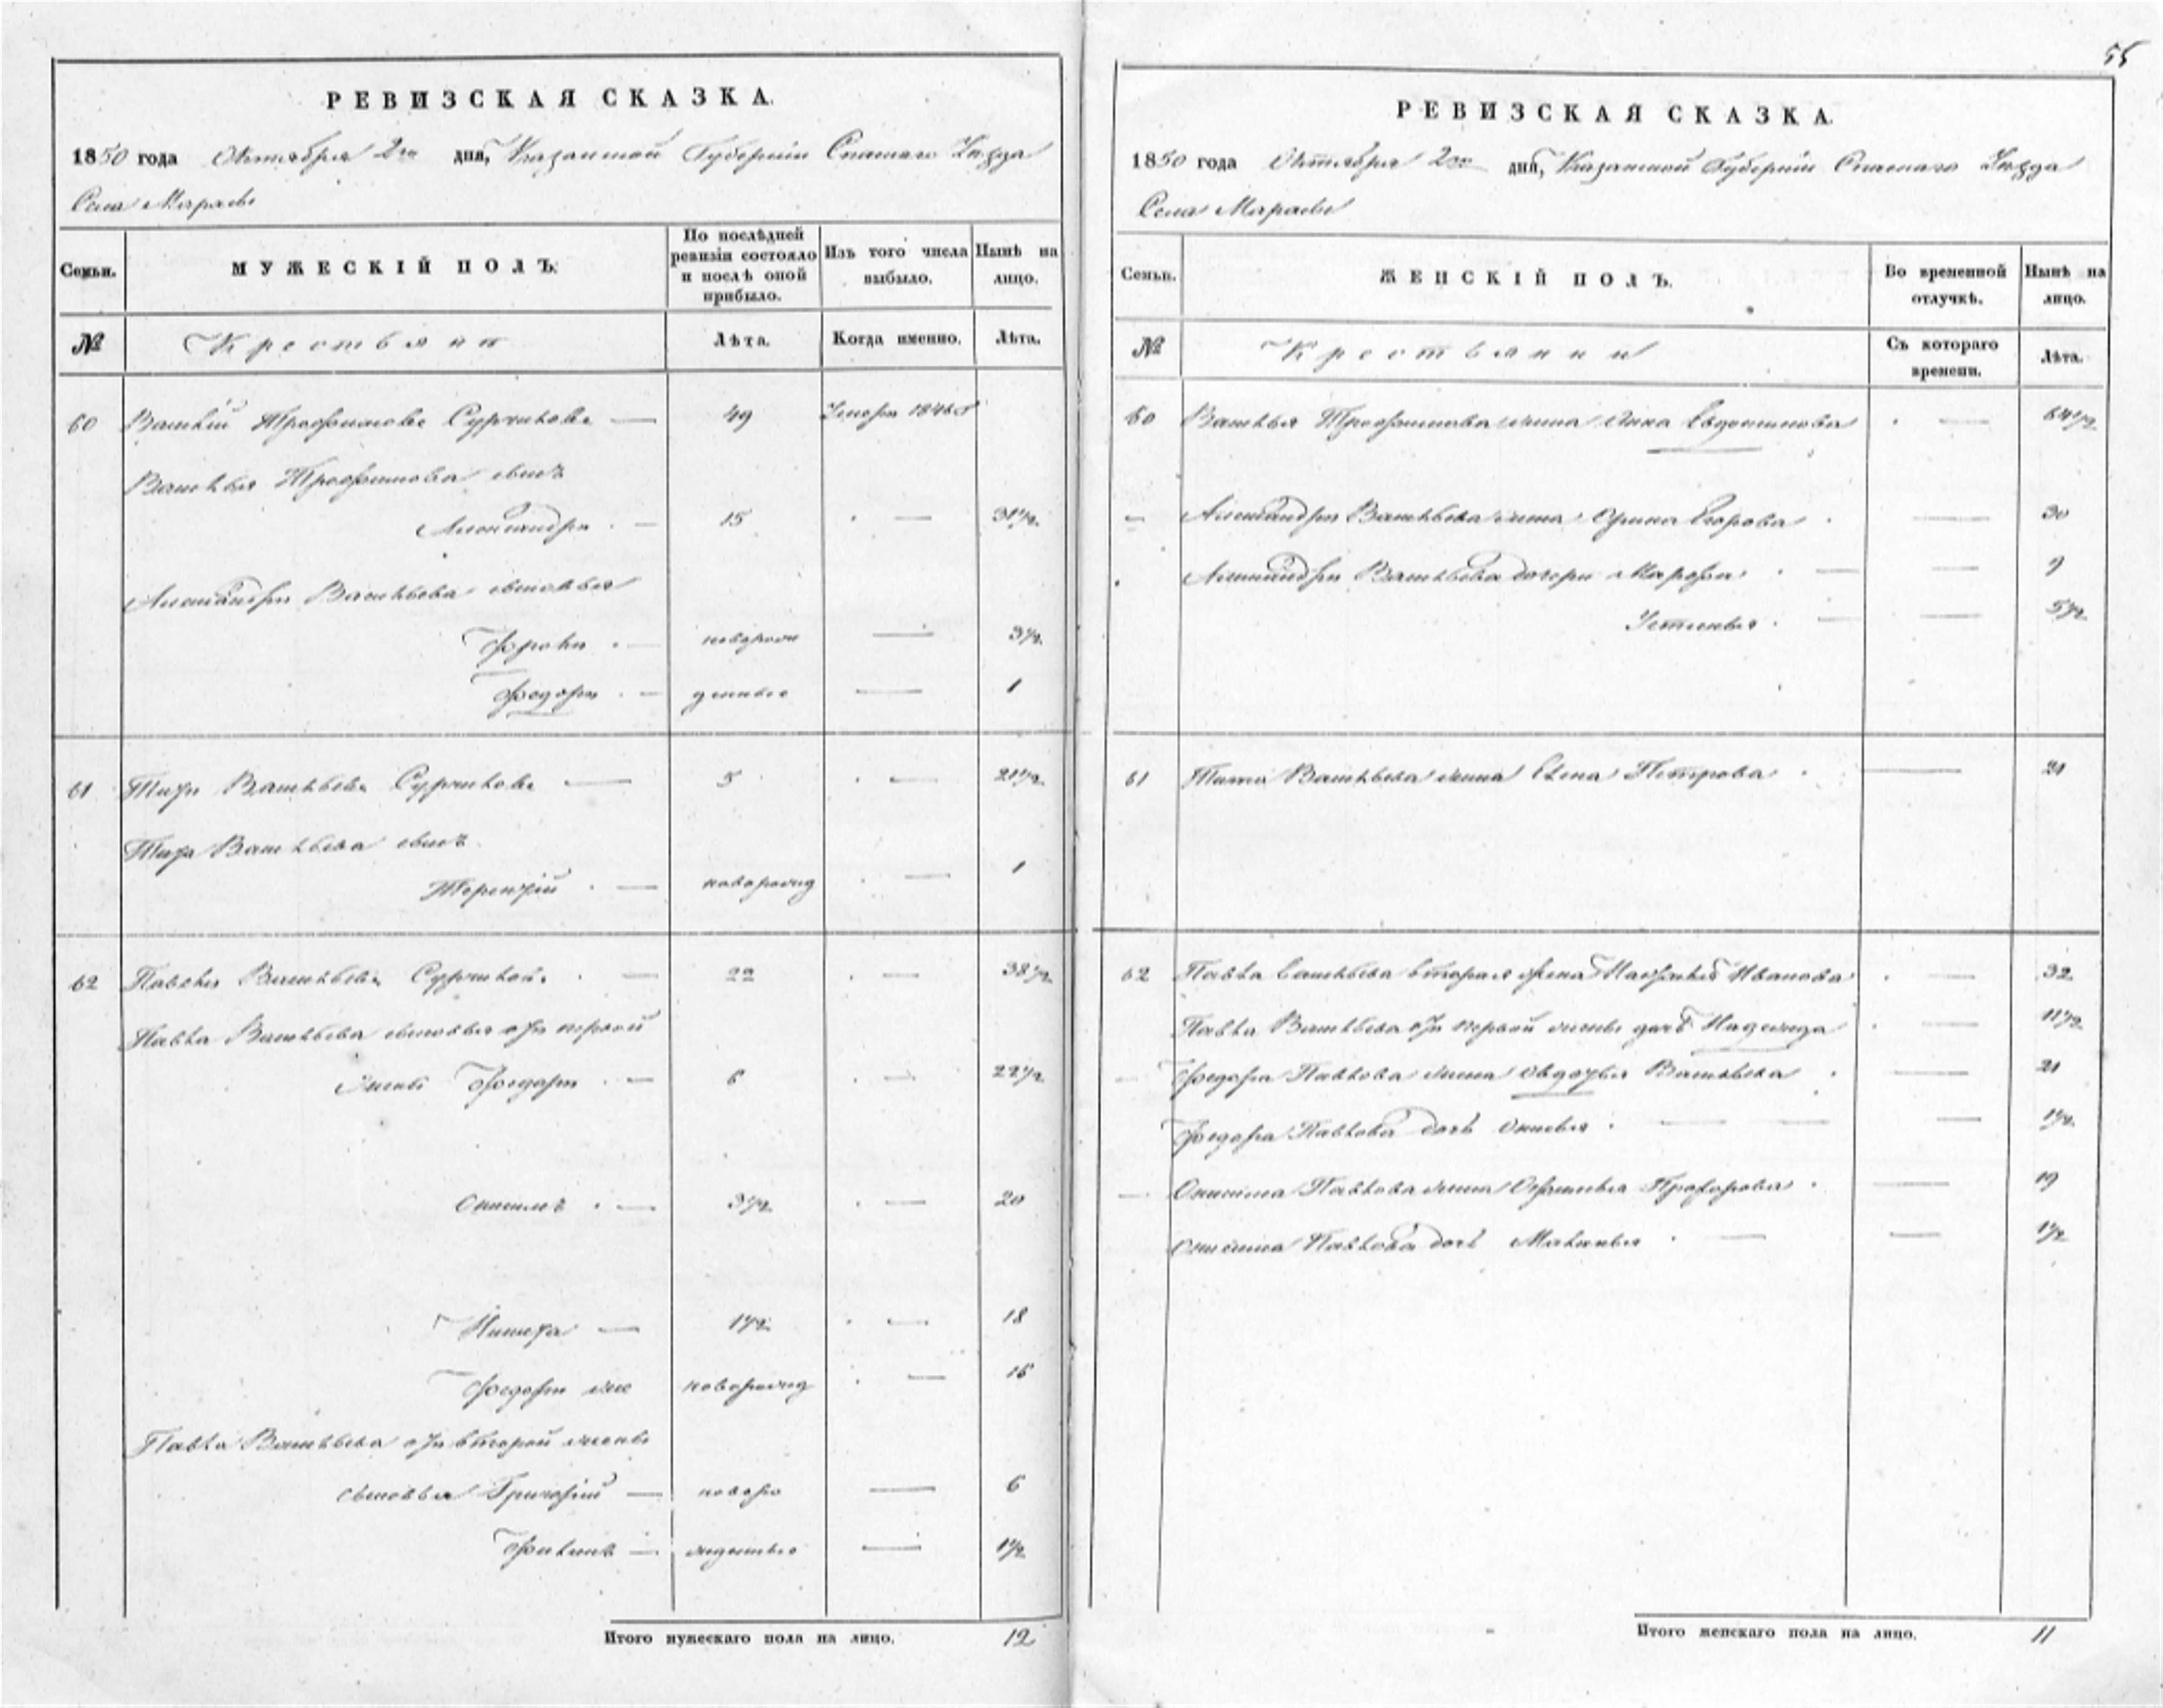 РЕВИЗСКАЯ СКАЗКА.
1850 года Октября 2го дня, Казанской Губерніи Спаскаго Уѣзда
Села Мараsы
Семьи.
МУЖЕСКІЙ ПОЛЪ.
По послѣдней ревизіи состояло и послѣ оной прибыло.
Изъ того числа выбыло.
Нынѣ на лицо.
№
Крестьяне
Лѣта.
Когда именно.
Лѣта.
60 Василій Трофимовъ — 49 1846
Василья Трофимова сынъ
Александръ — 15 — 31½
Александра Васильева сыновья
Фролъ — новорож — 3½
Федоръ — денные — 1
61 Титъ Васильевъ — 5 — 21½
Тита Васильева сынъ
Терентій — новорожд — 1
62 Павелъ Васильевъ — 22 — 38½
Павла Васильева сыновья отъ первой
жены Федоръ — 6 — 22½
Онисимъ — 3½ — 20
Никита — 1½ — 18
Федоръ же новорожд — 16
Павла Васильева отъ второй жены
сыновья Григорій — новоро — 6
Филипъ — жденные — 1½
Итого мужескаго пола на лицо. 12
55
РЕВИЗСКАЯ СКАЗКА.
1850 года Октября 2го дня, Казанской Губерніи Спаскаго Уѣзда
Села
Семьи.
ЖЕНСКІЙ ПОЛЪ.
Во временной отлучкѣ.
Нынѣ на лицо.
№
Крестьянки
Съ котораго времени.
Лѣта.
60 Василья Трофимова жена Анна — 64½
— Александра Васильева жена Орина Егорова — 30
Александра Васильева дочери Марфа — — 9
Устинья — — 5½
61 Тита Васильева жена Елена Петрова — 21
62 Павла Васильева вторая жена Иванова — 32
Павла Васильева отъ первой жены дочь Надежда — 11½
— Федора Павлова жена Авдотья Васильева — 21
Федора Павлова дочь — — — 1½
— Онисима Павлова жена Прохорова — 19
Онисима Павлова дочь — — 1½
Итого женскаго пола на лицо. 11